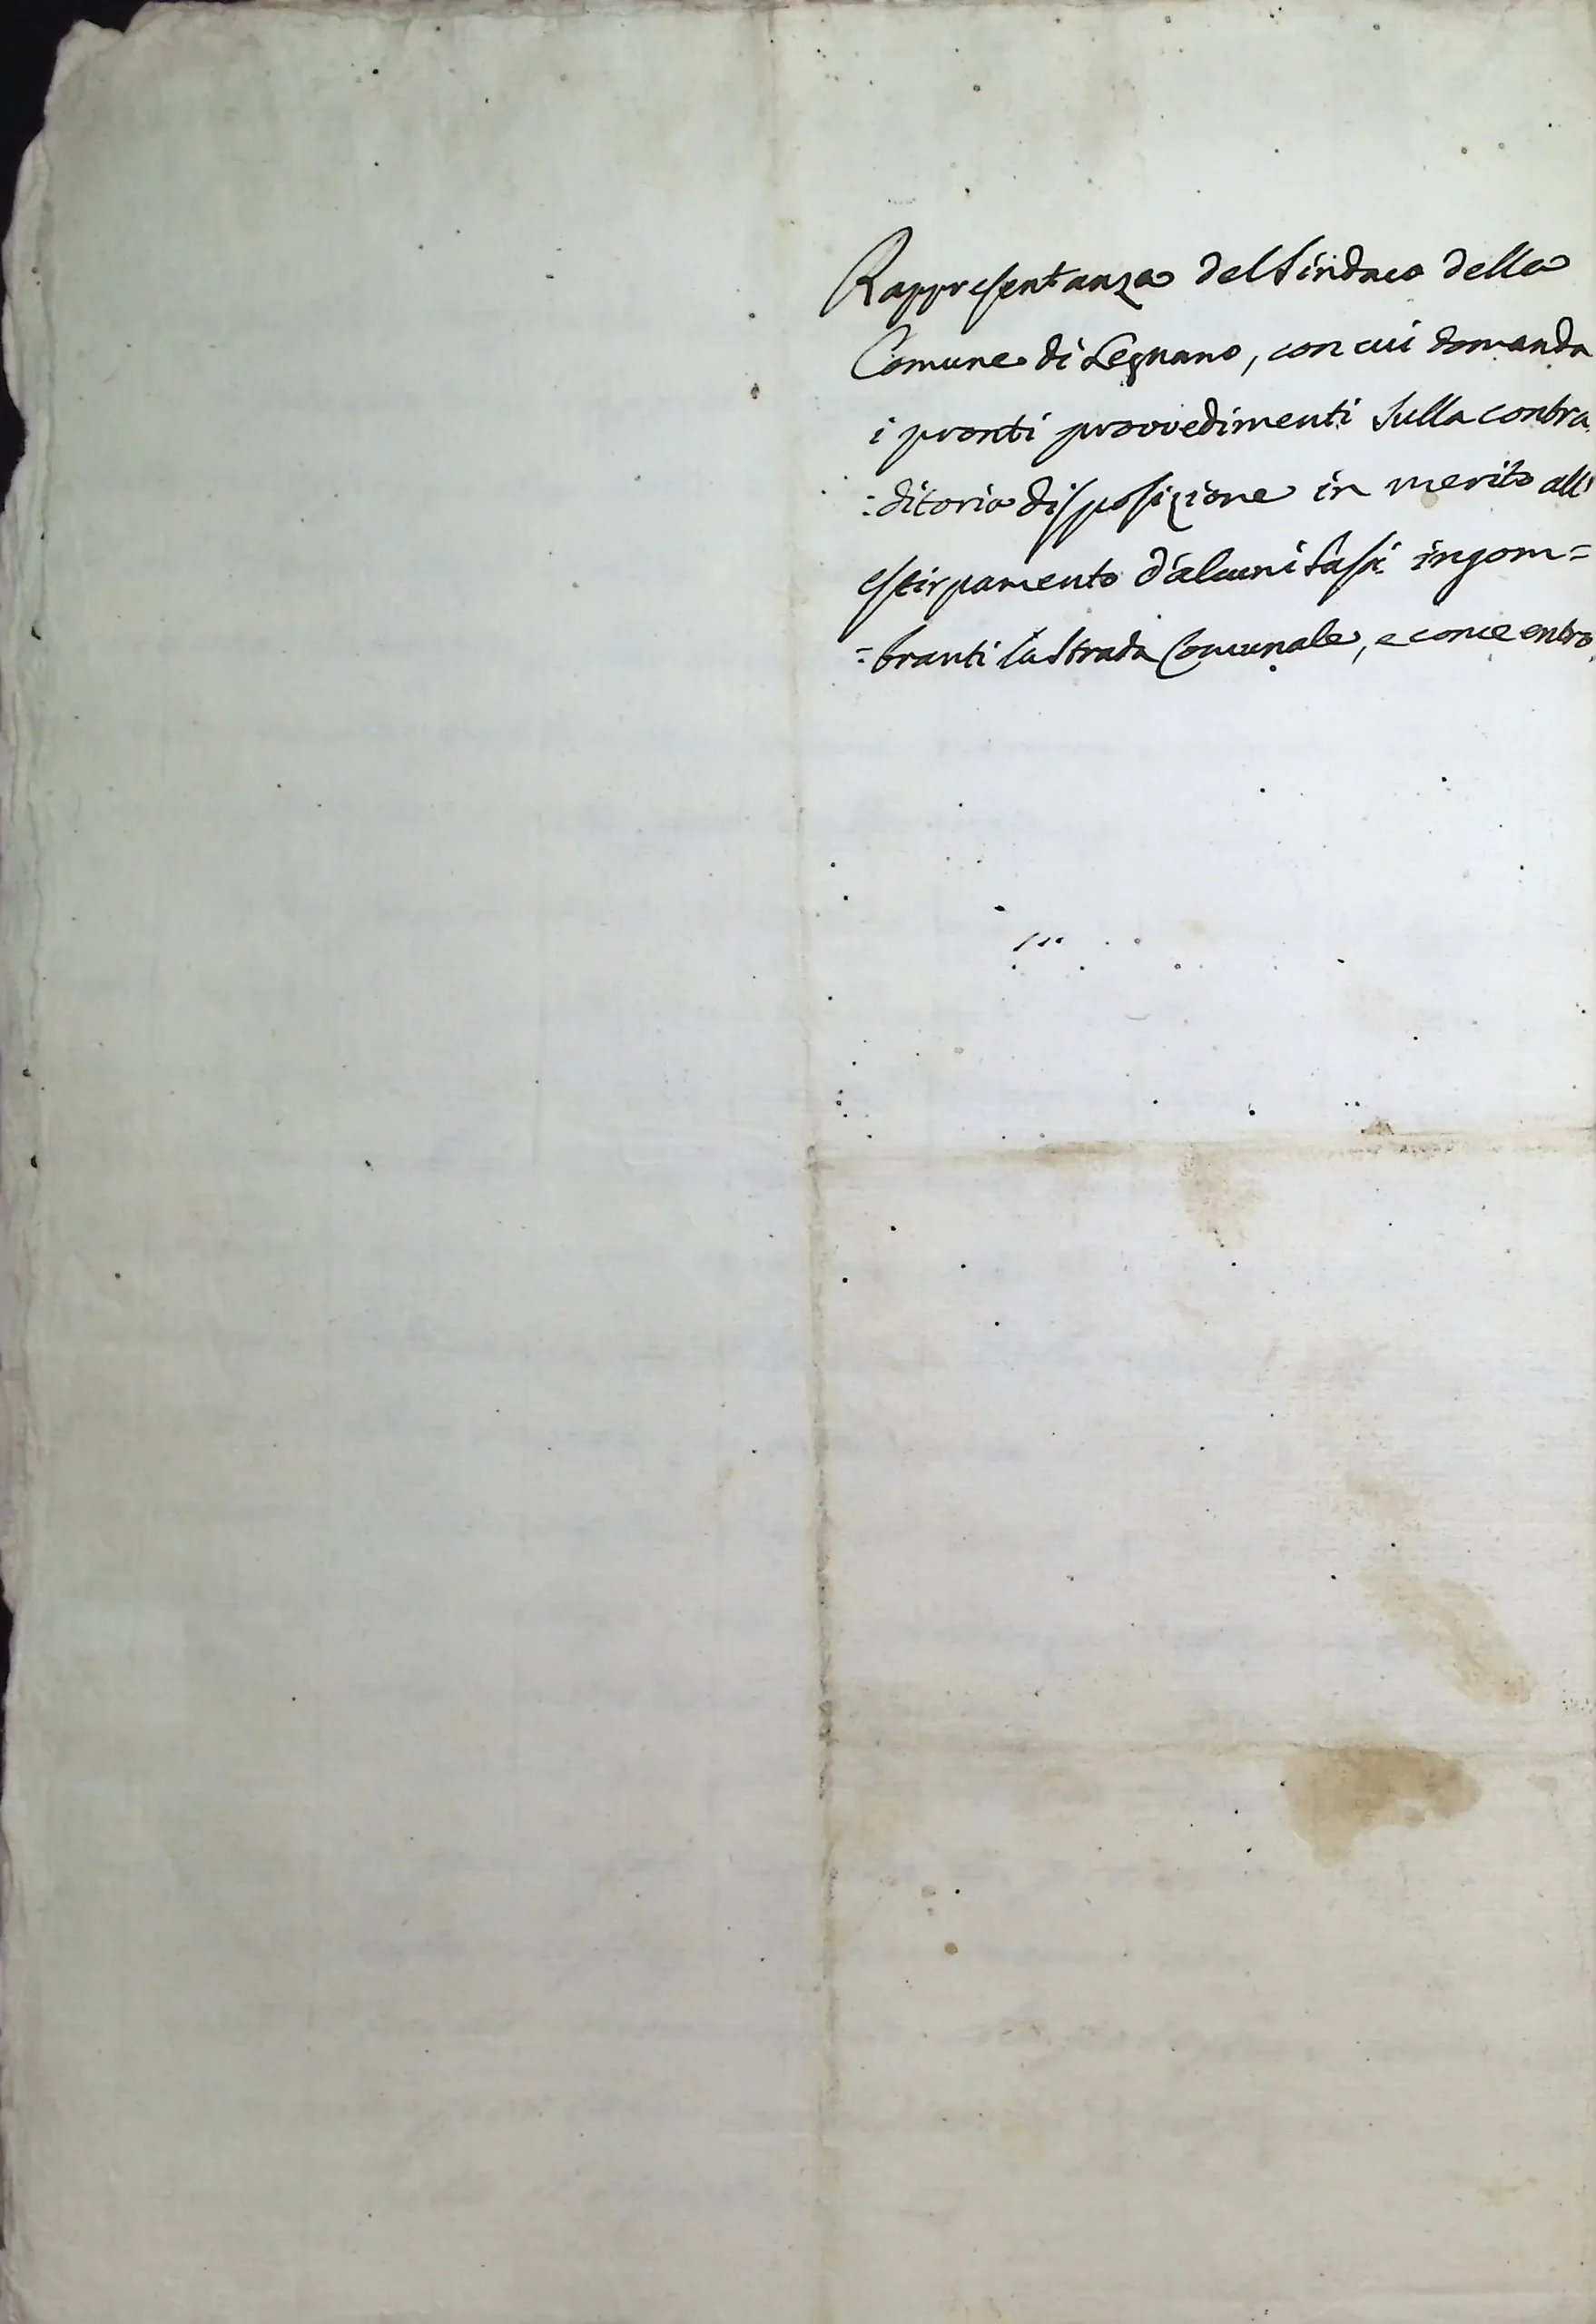 Rappresentanza del Sindaco della
Comune di Legnano, con cui domanda
i pronti provvedimenti sulla contra
:ditoria disposizione in merito all'
estirpamento d'alcuni Sassi ingom=
=branti la Strada Comunale, e come entro.